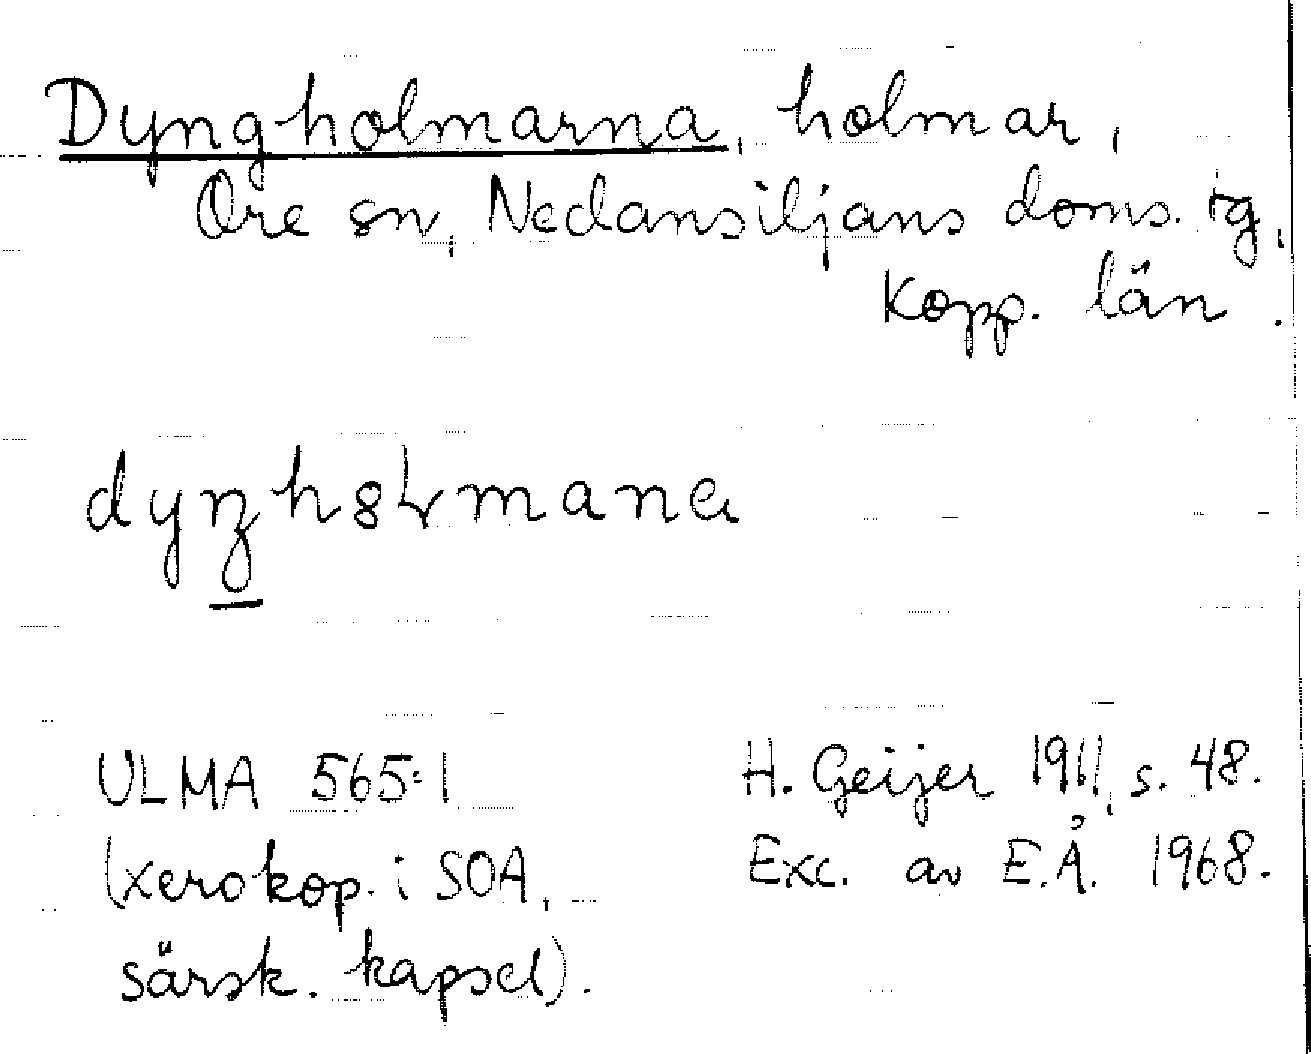 Dyngholmarna, holmar,
Ore sn, Nedansiljans doms. tg,
Kopp. län.
ULMA 565:1
H. Geijer 1911, s. 48.
(xerokop. i SOA,
Exc. av E.Å. 1968.
särsk. kapsel).